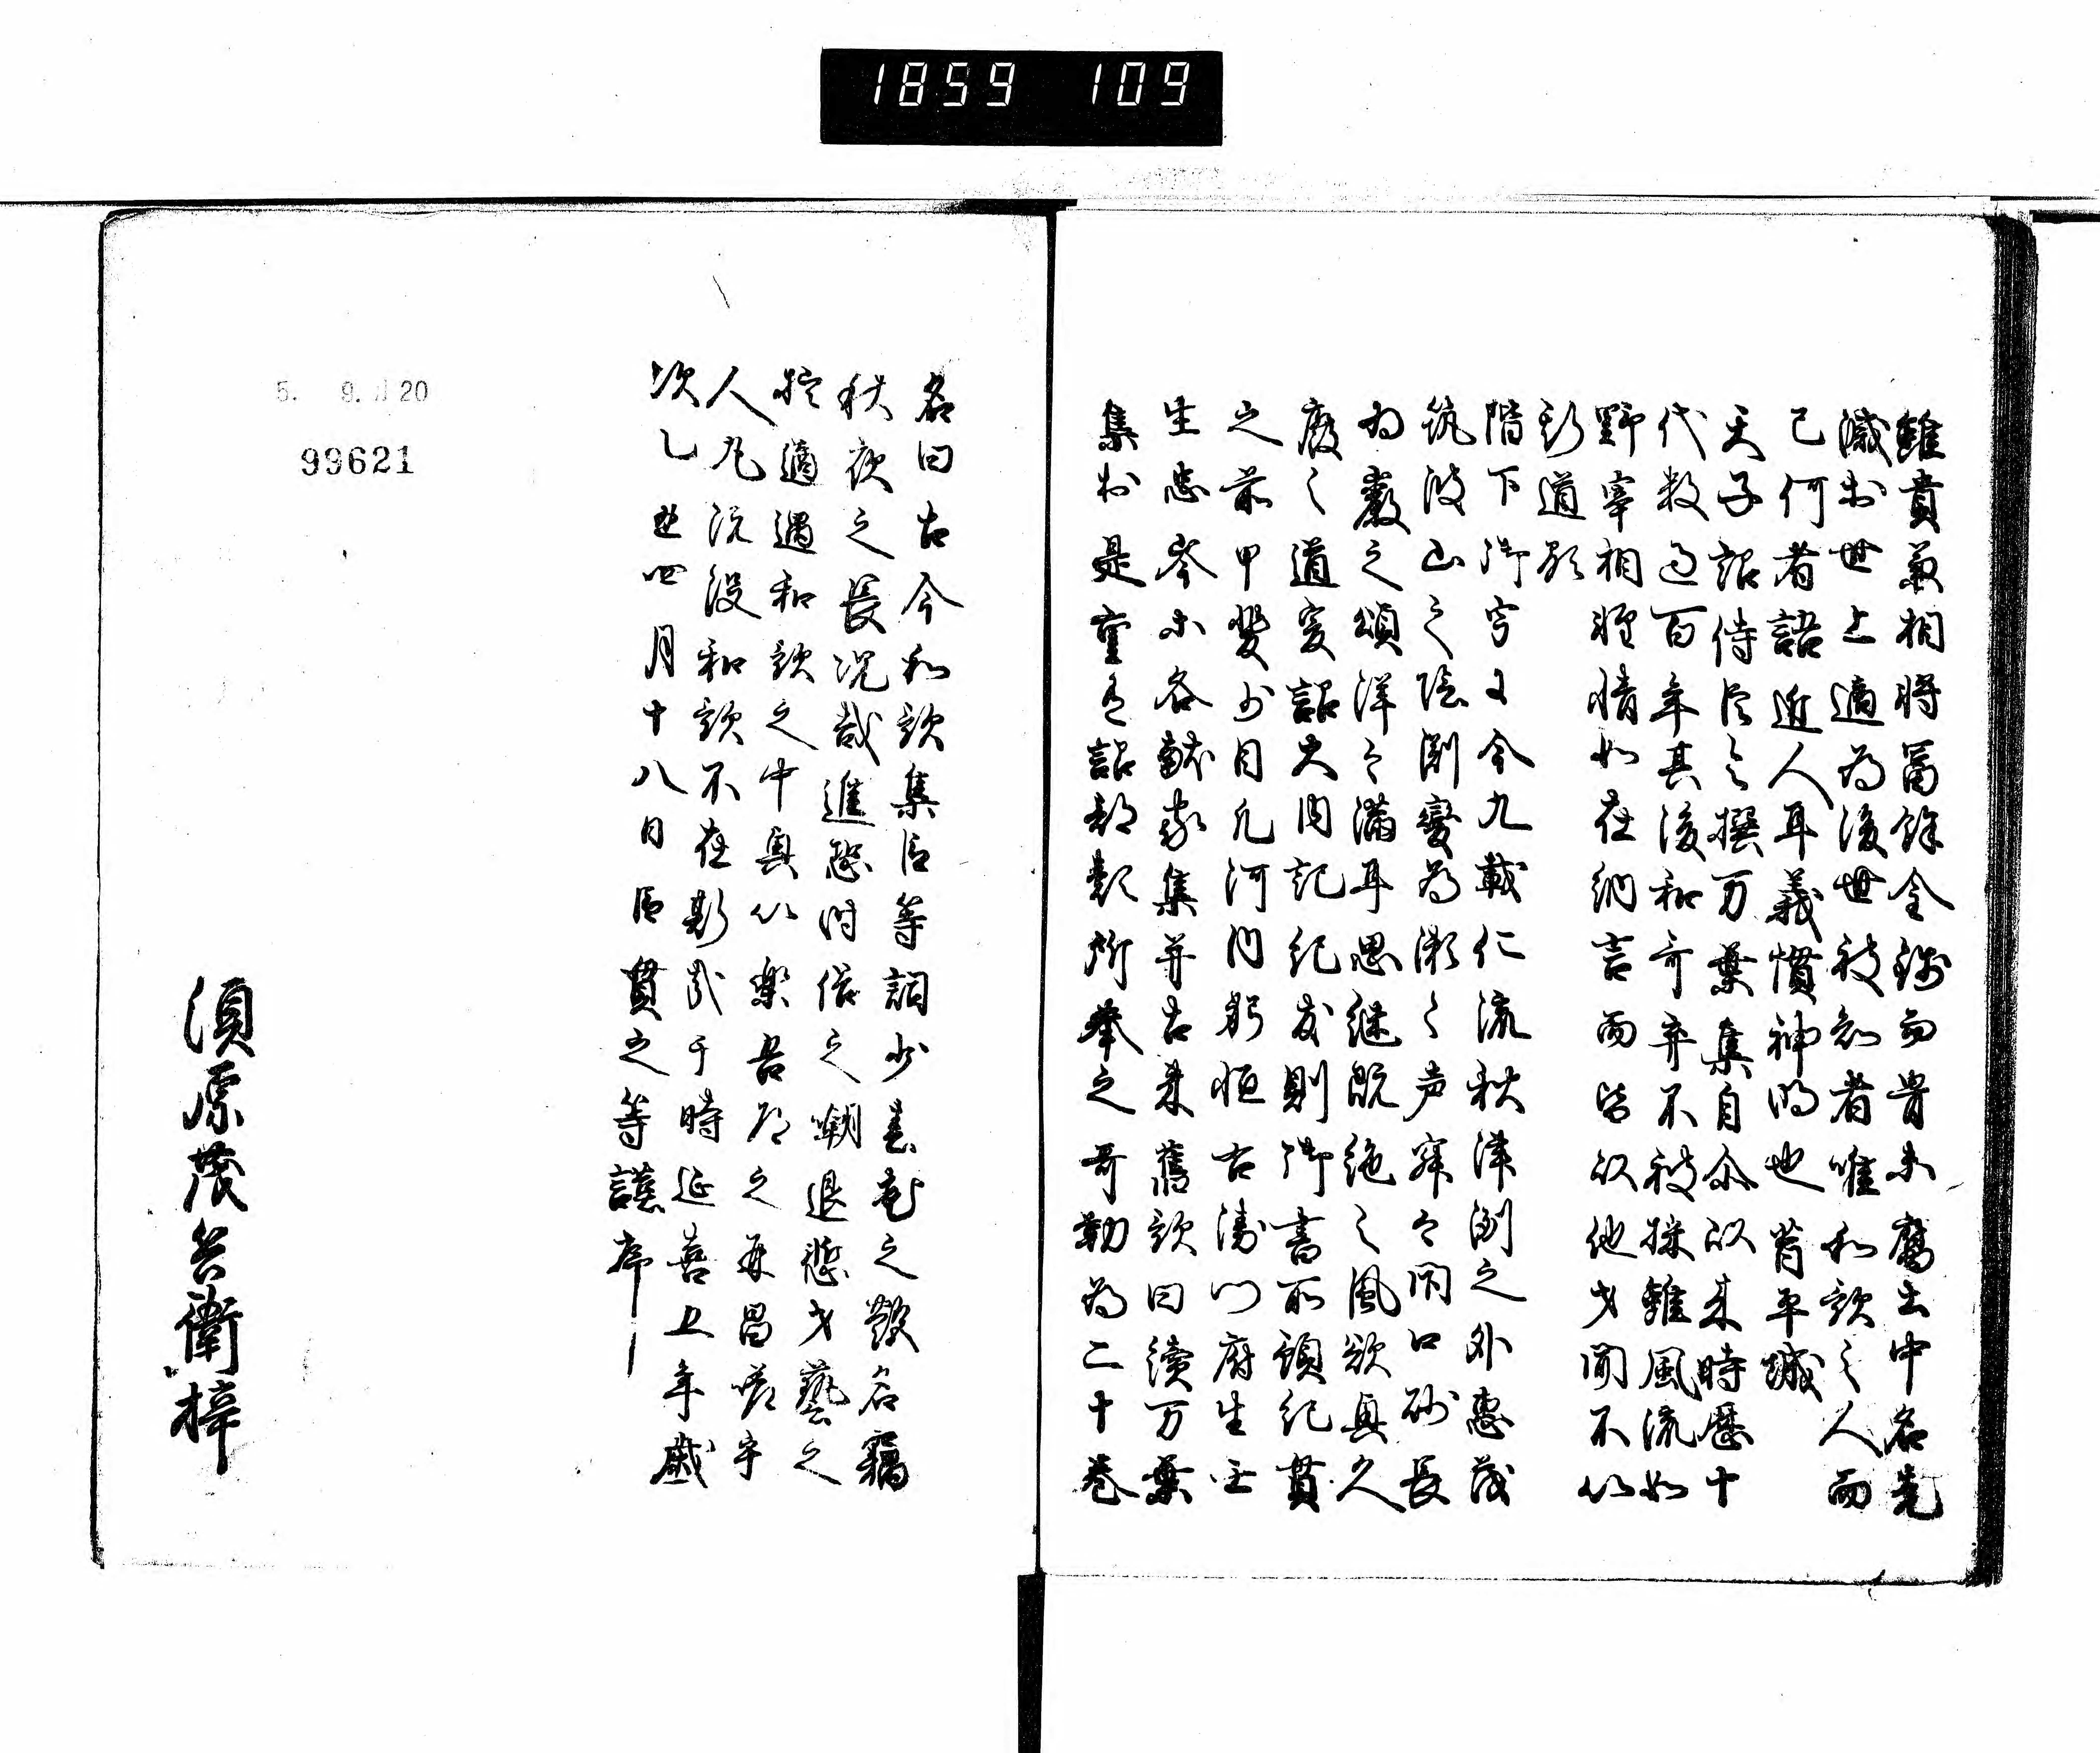 1859 109
雖貴兼相将冨餘金銭而骨未腐土中名先
滅於世上適為後世被知者唯和歌之人而
已何者語近人耳義慣神明也昔平城
天子詔侍臣令撰万葉集自尓以来時歴十
代数過百年其後和哥弃不被採雖風流如
野宰相雅情如在納言而皆以他才聞不以
斯道顕
階下御宇于今九載仁流秋津洲之外恵茂
筑波山之陰淵變為瀬之声寂々閇口砂長
為巌之頌洋々満耳思継既絶之風欲興久
廃之道爰詔大内記紀友則御書所預紀貫
之前甲斐少目凡河内躬恒右衛門府生壬
生忠岑等各献家集并古来舊歌曰續万葉
集於是重有詔部類所奉之哥勒為二十巻
名曰古今和歌集臣等詞少春花之艶名竊
秋夜之長况哉進恐時俗之嘲退慙才藝之
拙適遇和歌之中興以樂吾道之再昌嗟乎
人丸既没和歌不在斯哉于時延喜五年歳
次乙丑四月十八日臣貫之等謹序
須原茂兵衛梓
5. 9. 20
99621